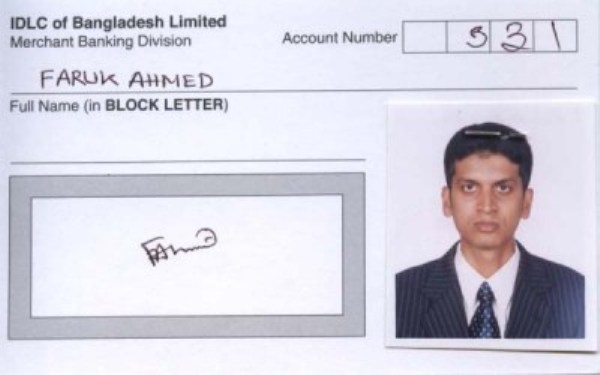 IDLC of Bangladesh Limited
Merchant Banking Division
Account Number 331
FARUK AHMED
Full Name (in BLOCK LETTER)
FAhmed